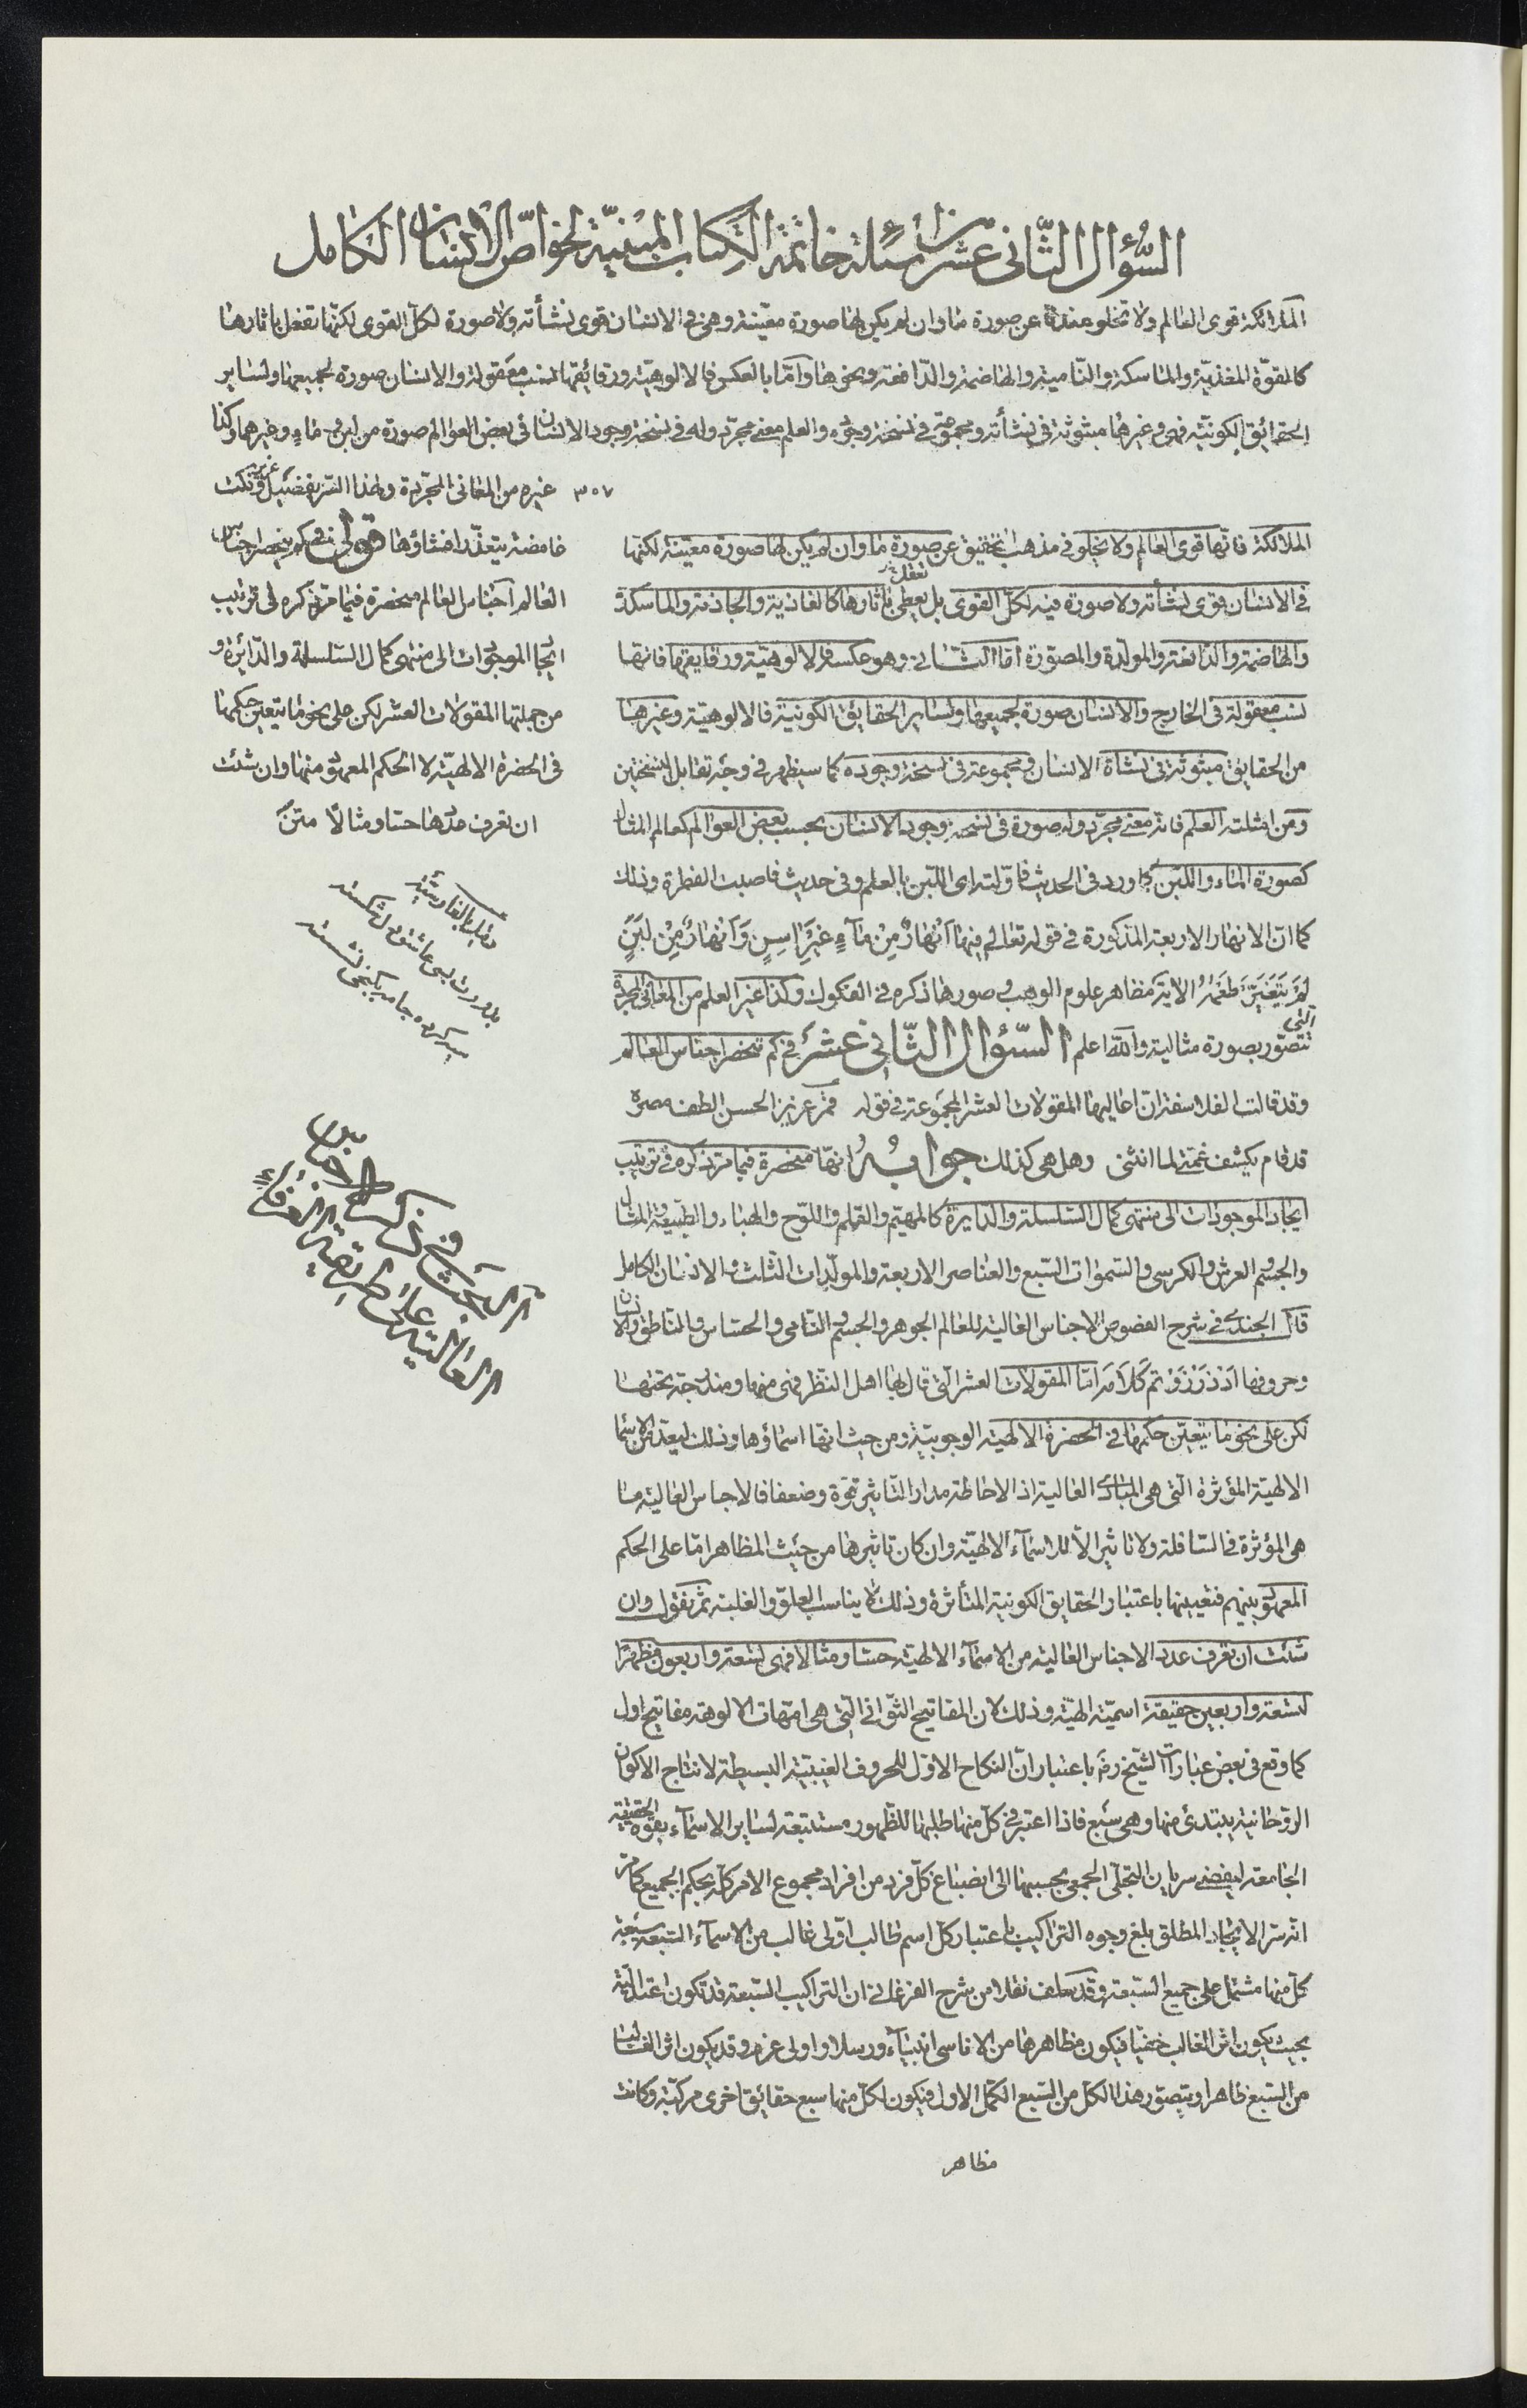 السّؤال الثّانى عشر من اسئلة خاتمة الكتاب المبنيّة لخواصّ الانسان الكامل
الملائكة قوى العالم ولا تخلو عندنا عن صورة ما وان لم يكن لها صورة معيّنة وهى فى الانسان قوى نشأته ولا صورة لكلّ القوى لكنّها تعقل باثارها
كالقوّة المغذّية والماسكة والنّامية والهاضمة والدّافعة ونحوها وامّا بالعكس فالالوهيّة ورقائقها نسب معقولة والانسان صورة لجميعها ولساير
الحقائق الكونيّة فهى وغيرها مبثوثة فى نشأته ومجموعة فى نسخة وجوده والعلم معنى مجرّد وله فى نسخة وجود الانسان فى بعض العوالم صورة من لبن وماء وغيرهما وكذا
٣٠٧ غيره من المعانى المجرّدة ولهذا السّرّ تفصيل عزيز ونكت
غامضة يتعذّر افشاؤها قوله فى كم ينحصر اجناس
العالم اجناس العالم منحصرة فيما مرّ ذكره فى ترتيب
ايجاد الموجودات الى منتهى كمال السّلسلة والدّائرة و
من جملتها المقولات العشر لكن على نحو ما يتعيّن حكمها
فى الحضرة الالهيّة لا الحكم المعهود منها وان شئت
ان تعرف عددها حسّا ومثالا متن
الملائكة فانّها قوى العالم ولا يخلو فى مذهب التحقيق عن صورة ما وان لم يكن لها صورة معيّنة لكنّها
فى الانسان قوى نشأته ولا صورة فيه لكلّ القوى بل تعقل باثارها كالغاذية والجاذبة والماسكة
والهاضمة والدّافعة والمولّدة والمصوّرة امّا الثّانى وهو عكسه فالالوهيّة ورقايقها فانها
نسب معقولة فى الخارج والانسان صورة لجميعها ولساير الحقايق الكونية فالالوهيّة وغيرها
من الحقايق مبثوثة فى نشأة الانسان ومجموعة فى نسخة وجوده كما سيظهر فى وجه تقابل النسختين
ومن امثلته العلم فانه معنى مجرّد وله صورة فى نسخة وجود الانسان بحسب بعض العوالم كعالم المثال
كصورة الماء واللّبن كما ورد فى الحديث فاوّلته اى اللّبن بالعلم وفى حديث فاصبت الفطرة وذلك
كما انّ الانهار الاربعة المذكورة فى قوله تعالى فيها انهار من ماء غير اسن وانهار من لبن
لم يتغيّر طعمه الاية مظاهر علوم الوهب وصورها ذكره فى الفكوك وكذا غير العلم من المعانى المجرّدة
التى تتصوّر بصورة مثالية واللّه اعلم السّؤال الثّانى عشر فى كم تنحصر اجناس العالم
وقد قالت الفلاسفة انّ اعاليها المقولات العشر المجموعة فى قوله قمر عزيز الحسن الطف مصره
قد قام يكشف غمّتى لما انثنى وهل هى كذلك جوابه انها منحصرة فيما مرّ ذكره فى ترتيب
ايجاد الموجودات الى منتهى كمال السّلسلة والدّايرة كالمهيّم والقلم واللّوح والهباء والطّبيعة والمثال
والجسم العرش والكرسى والسّموات السّبع والعناصر الاربعة والمولّدات الثّلث والانسان الكامل
قال الجندى فى شرح الفصوص الاجناس العالية للعالم الجوهر والجسم النّامى والحسّاس والنّاطق والانسان
امّا المقولات العشر الّتى قال بها اهل النّظر فهى منها ومندرجة تحتها
لكن على نحو ما يتعيّن حكمها فى الحضرة الالهيّة الوجوبيّة ومن حيث انها اسماؤها وذلك ليعدّ من الاسما
الالهيّة المؤثرة الّتى هى المبادى العالية اذ الاحاطة مدار التّاثير قوّة وضعفا فالاجناس العالية ما
هى المؤثرة فى السّافلة ولا تاثير الّا للاسماء الالهيّة وان كان تاثيرها من حيث المظاهر امّا على الحكم
المعهود بينهم فتعيينها باعتبار الحقايق الكونية المتأثرة وذلك لا يناسب العلوّ والغلبة ثم نقول وان
شئت ان تعرف عدد الاجناس العالية من الاسماء الالهيّة حسّا ومثالا فهى تسعة واربعون مظهرا
لتسعة واربعين حقيقة اسميّة الهيّة وذلك لان المفاتيح الثّوانى الّتى هى امّهات الالوهة مفاتيح اول
كما وقع فى بعض عبارات الشّيخ رضه باعتبار انّ النكاح الاوّل للحروف الغيبيّة البسيطة لانتاج الاكوان
الرّوحانية يبتدئ منها وهى سبع فاذا اعتبر فى كلّ منها طلبها للظّهور مستتبعة لساير الاسماء بقوّة الحقيقة
الجامعة ليفضى سريان التجلّى الجمعى بحسبها الى انصباغ كلّ فرد من افراد مجموع الامر كلّه بحكم الجميع كما مرّ
انه سرّ الايجاد المطلق بلغ وجوه التراكيب باعتبار كلّ اسم طالب اوّلى غالب من الاسماء السّبعة سبعة
كلّ منها مشتمل على جميع السّبعة وقد سلف نقلا من شرح الفرغانى ان التراكيب السّبعة قد تكون اعتداليّة
بحيث يكون اثر الغالب خفيّا فيكون مظاهرها من الاناسى انبياء ورسلا واولى عزم وقد يكون اثر الغالب
من السّبع ظاهرا ويتصوّر هذا الكلّ من السّبع الكمّل الاول فيكون لكلّ منها سبع حقائق اخرى مركّبة وكانت
مظاهر